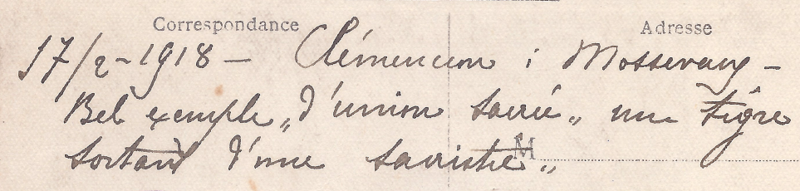 Correspondance Adresse
17/2-1918 — Clémenceau à Massevaux —
Bel exemple „d'union sacrée„ un tigre
sortant d'une sacristie„
M